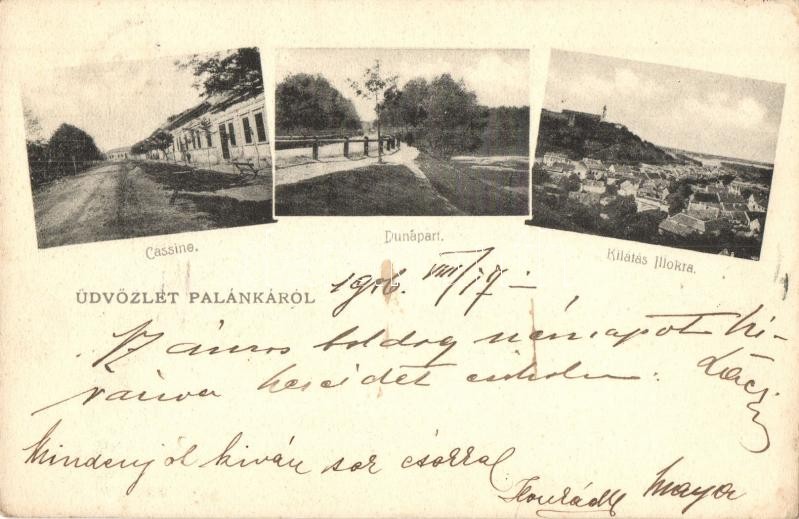 Cassine.
Dunapart.
Kilátás Illokra.
ÜDVÖZLET PALÁNKÁRÓL
1906. VIII/17 -
számos boldog névnapot ki-
vánva kezeidet csokolva: Laci
Minden jót kiván sok csókkal
Maya